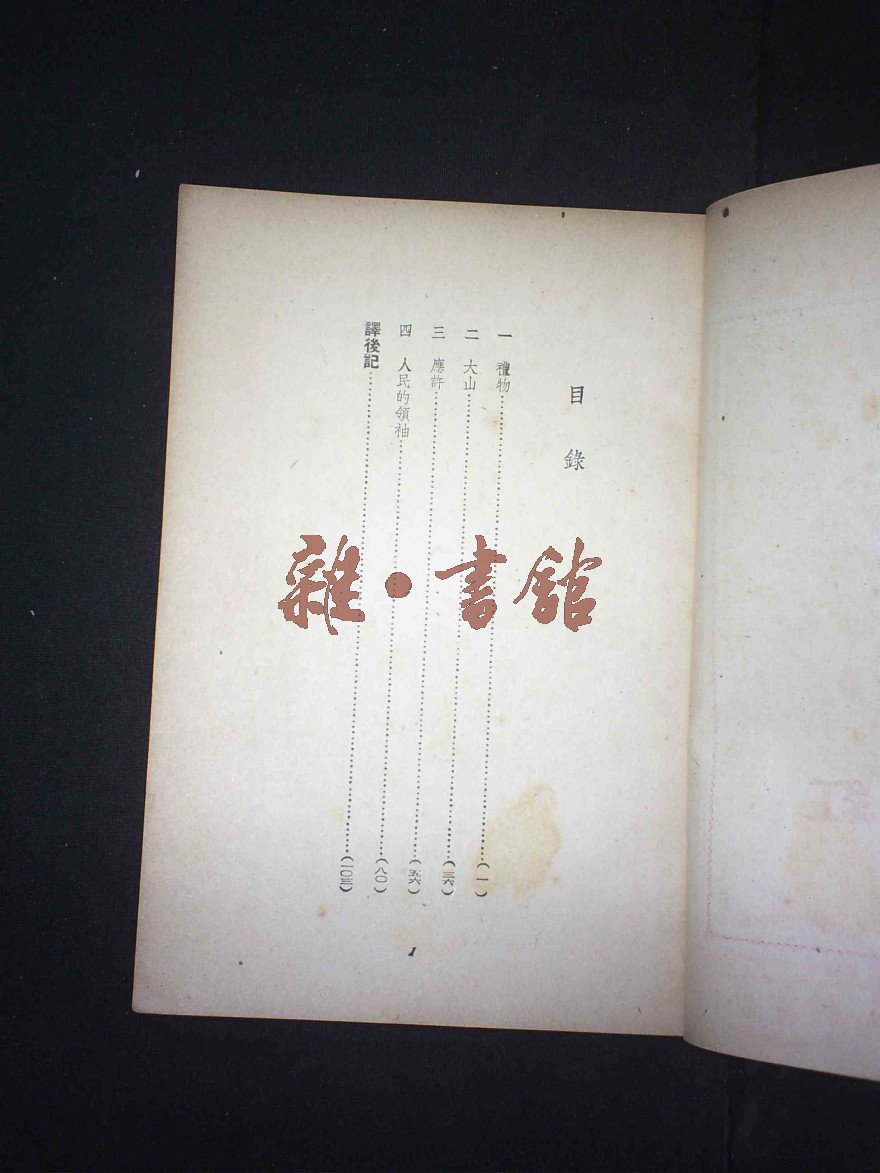 目錄
一 禮物……(一)
二 大山……(三六)
三 應許……(五六)
四 人民的領袖……(八〇)
譯後記……(一〇三)
1
雜·書館
紅